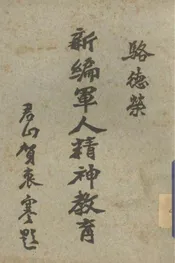 駱德榮
新編軍人精神教育
君山賀衷寒題